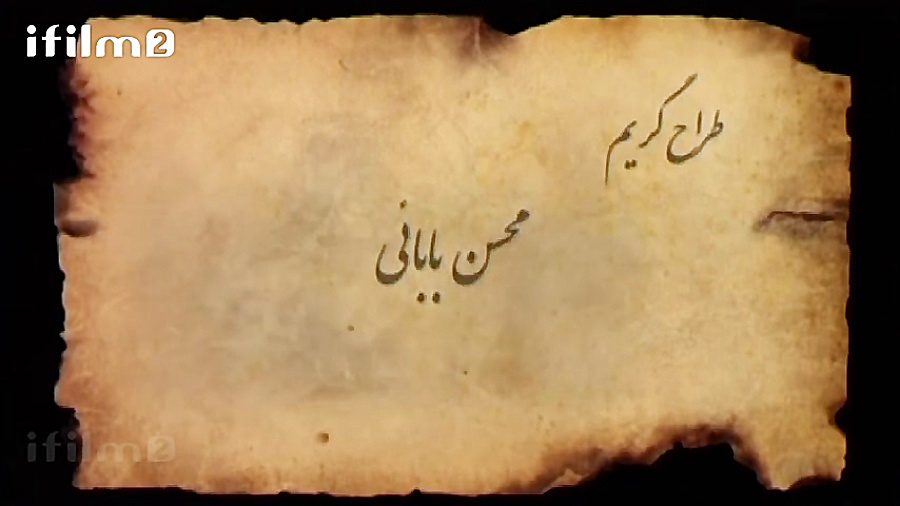 ifilm2
طراح گریم
محسن بابائی
ifilm2